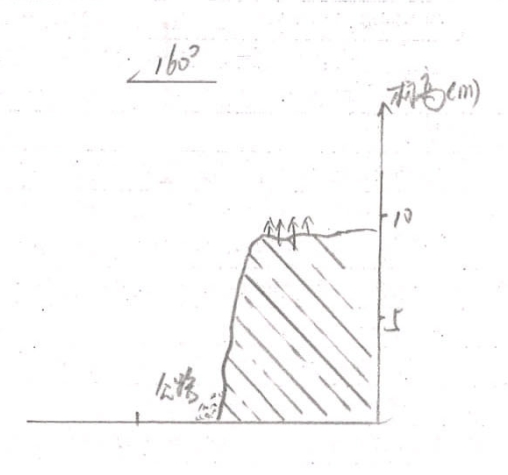 160°
标高(m)
10
5
公路